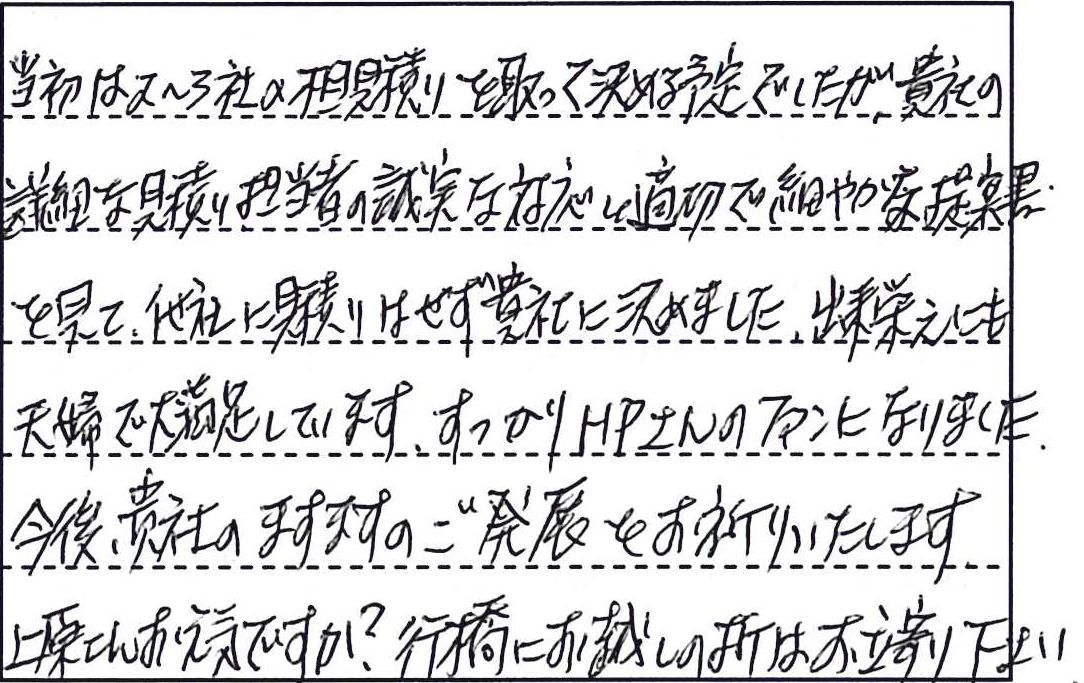 当初は2〜3社の相見積りを取って決める予定でしたが、貴社の
詳細な見積り、担当者の誠実な対応と適切で細やかな提案書
を見て、他社に見積りはせず貴社に決めました、出来栄えにも
夫婦で大満足しています、すっかりHPさんのファンになりました、
今後、貴社のますますのご発展をお祈りいたします、
上原さんお元気ですか?行橋にお越しの折はお立寄り下さい